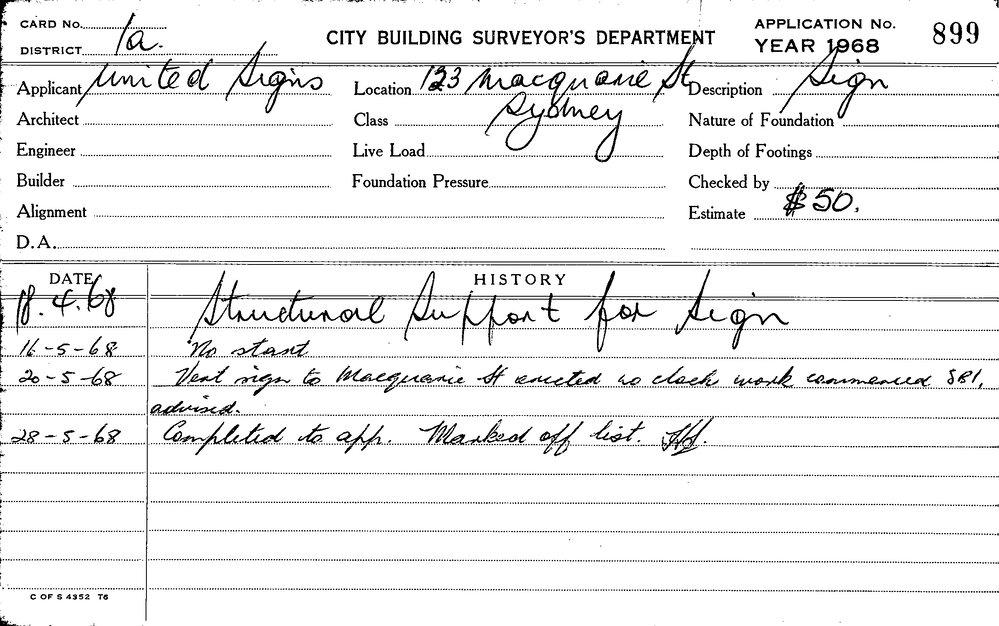 CARD No.
DISTRICT 1a.
CITY BUILDING SURVEYOR'S DEPARTMENT
APPLICATION No. 899
YEAR 1968
Applicant United Signs
Location 123 Macquarie St
Sydney
Description Sign
Architect
Class
Nature of Foundation
Engineer
Live Load
Depth of Footings
Builder
Foundation Pressure
Checked by
Alignment
Estimate $50.
D.A.
DATE HISTORY
18.4.68 Structural Support for Sign
16-5-68 No start
20-5-68 Vert sign to Macquarie St erected no clock work commenced SBI,
advised.
28-5-68 Completed to app. Marked off list.
C OF S 4352 T6